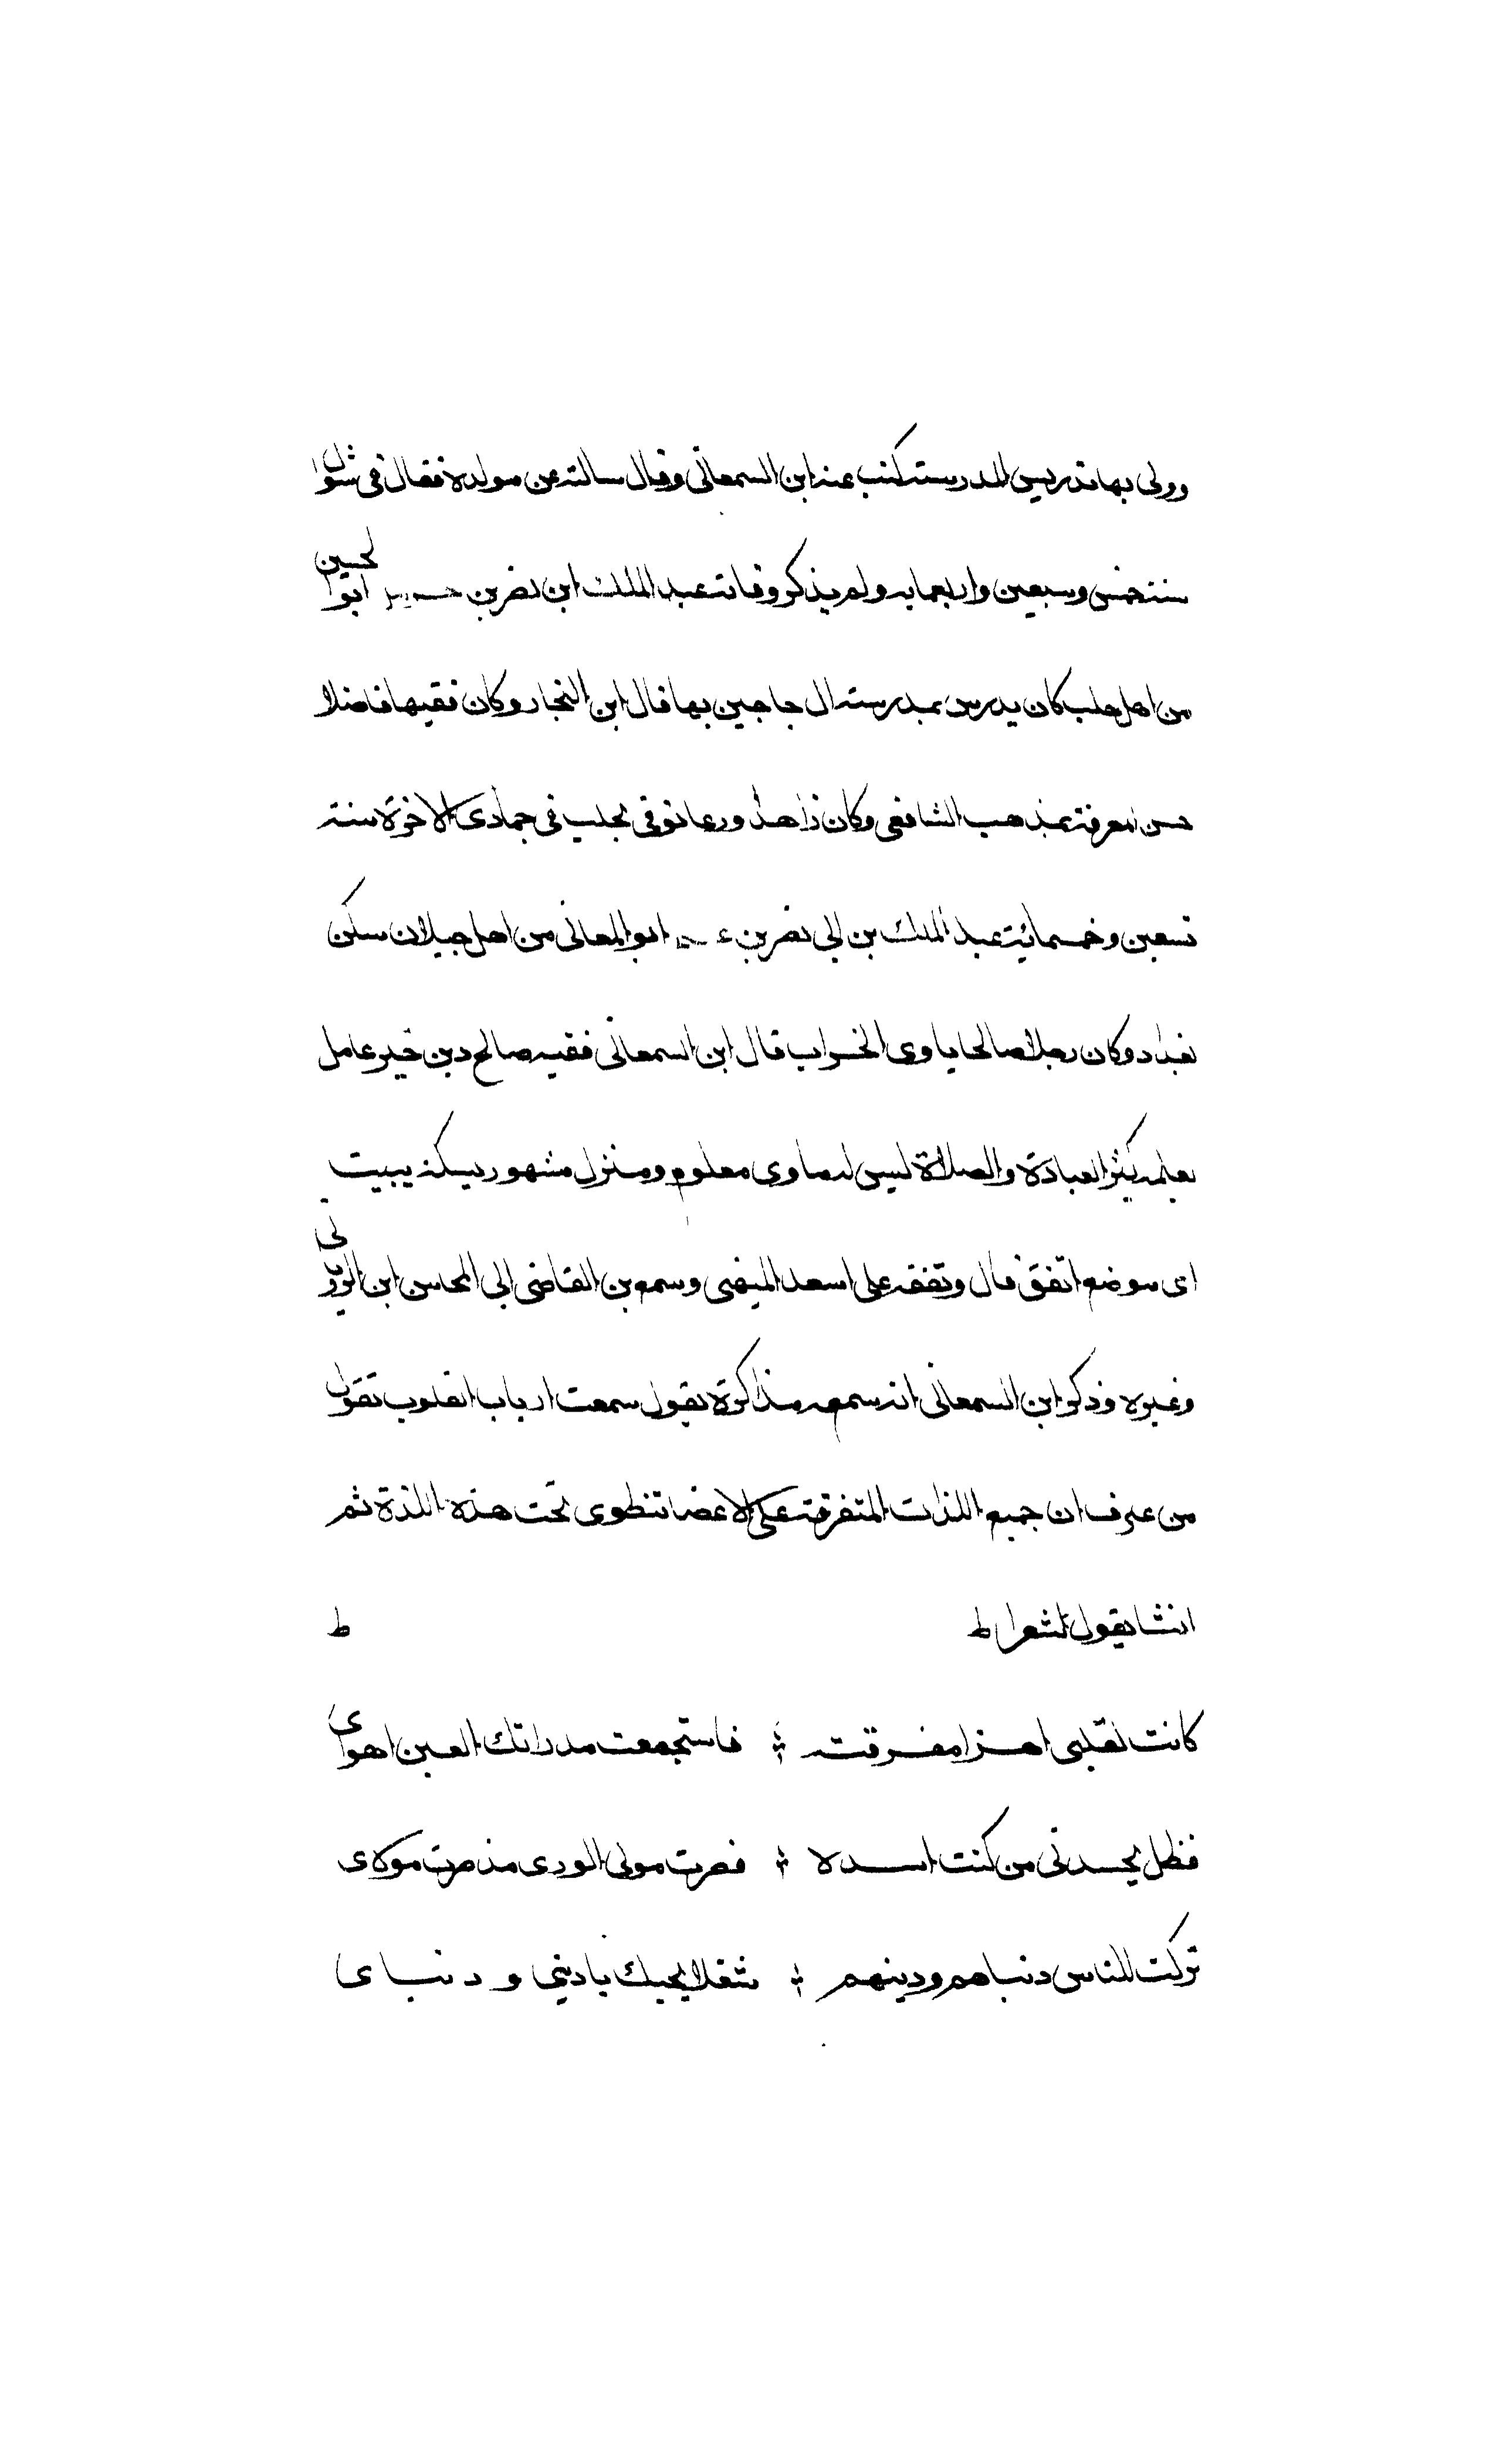 وولى بها تدريس المدرسته كتب عنه ابن السمعاني وقال سالته عن مولده فقال في شوال
سنة خمس وسبعين واربعمايه ولم يذكر وفاته عبد الملك ابن نصر بن ابوا لحسين
من اهل حلب كان يدرس بمدرسته ال جاجين بها قال ابن النجار وكان فقيها فاضلا
حسن المعرفة بمذهب الشافعي وكان زاهدا ورعا توفي بحلب في جمادى الاخرة سنته
تسعين وخمسمائية عبد الملك بن ابي نصر بن ابو المعالي من اهل جيلان سكن
بغداد وكان رجلا صالحا ياوى الخراب قال ابن اسمعاني فقيه صالح دين خير عامل
بعلمه كثير العبادة والصلاة ليس له ماوى معلوم ومنزل مشهور يسكنه يبيت
اى موضع اتفق قال وتفقه على اسعد الميهنى وسمع بن القاضى ابي المحاسن ابن الرويانى
وغيره وذكر ابن السمعاني انه سمعه مذاكرة يقول سمعت ارباب القلوب تقول
من عرف ان جميع اللذات المتفرقة على الاعضا تنطوى تحت هذه اللذة ثم
انشا يقول شعرا ط ط
كانت لقلبي اهوا مفرقته فاستجمعت مذ راتك العين اهواى
فظل يحسدنى من كنت احسده فصرت مولى الورى مذ صرت مولاى
تركت للناس دنياهم ودينهم شغلا بحبك يا ديني ودنياى